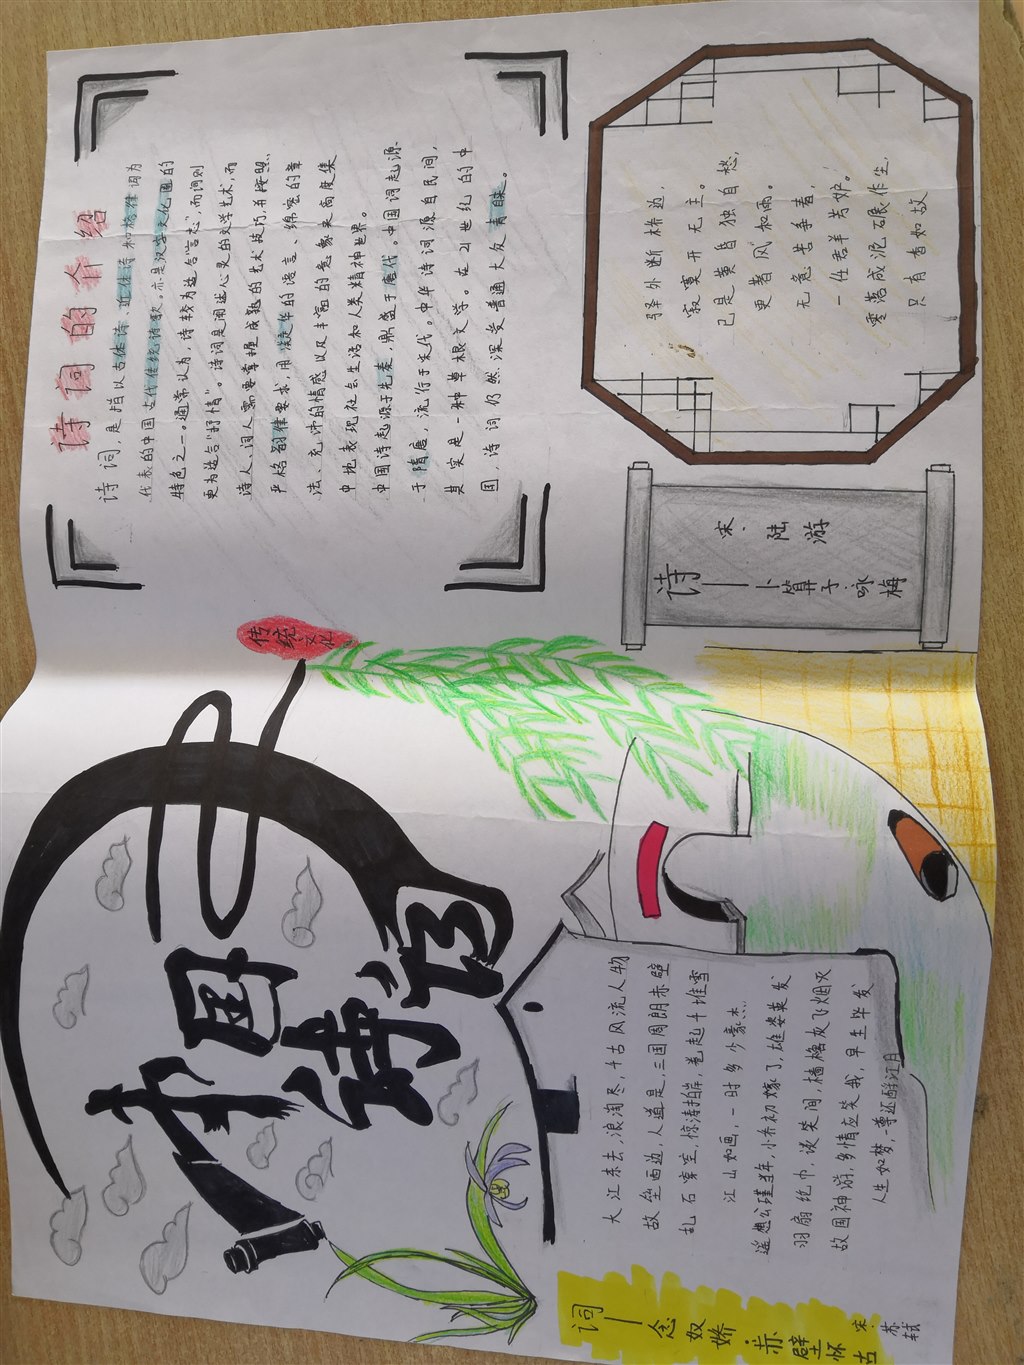 中国
诗词
传统
文化
词——念奴娇·赤壁怀古
宋·苏轼
大江东去,浪淘尽,千古风流人物
故垒西边,人道是,三国周郎赤壁
乱石穿空,惊涛拍岸,卷起千堆雪
江山如画,一时多少豪杰
遥想公瑾当年,小乔初嫁了,雄姿英发
羽扇纶巾,谈笑间樯橹灰飞烟灭
故国神游,多情应笑我,早生华发
人生如梦,一尊还酹江月
诗词的介绍
诗词,是指以古体诗、近体诗和格律词为
代表的中国古代传统诗歌。亦是汉字文化圈的
特色之一。通常认为,诗较为适合“言志”,而词则
更为适合“抒情”。诗词是阐述心灵的文学艺术,而
诗人、词人需要掌握成熟的艺术技巧,并按照
严格韵律要求,用凝华的语言、绵密的章
法、充沛的情感以及丰富的意象来高度集
中地表现社会生活和人类精神世界。
中国诗起源于先秦,鼎盛于唐代。中国词起源
于隋唐,流行于宋代。中华诗词源自民间,
其实是一种草根文学。在21世纪的中
国,诗词仍然深受普通大众青睐。
诗——卜算子·咏梅
宋·陆游
驿外断桥边,
寂寞开无主。
已是黄昏独自愁,
更著风和雨。
无意苦争春,
一任群芳妒。
零落成泥碾作尘,
只有香如故